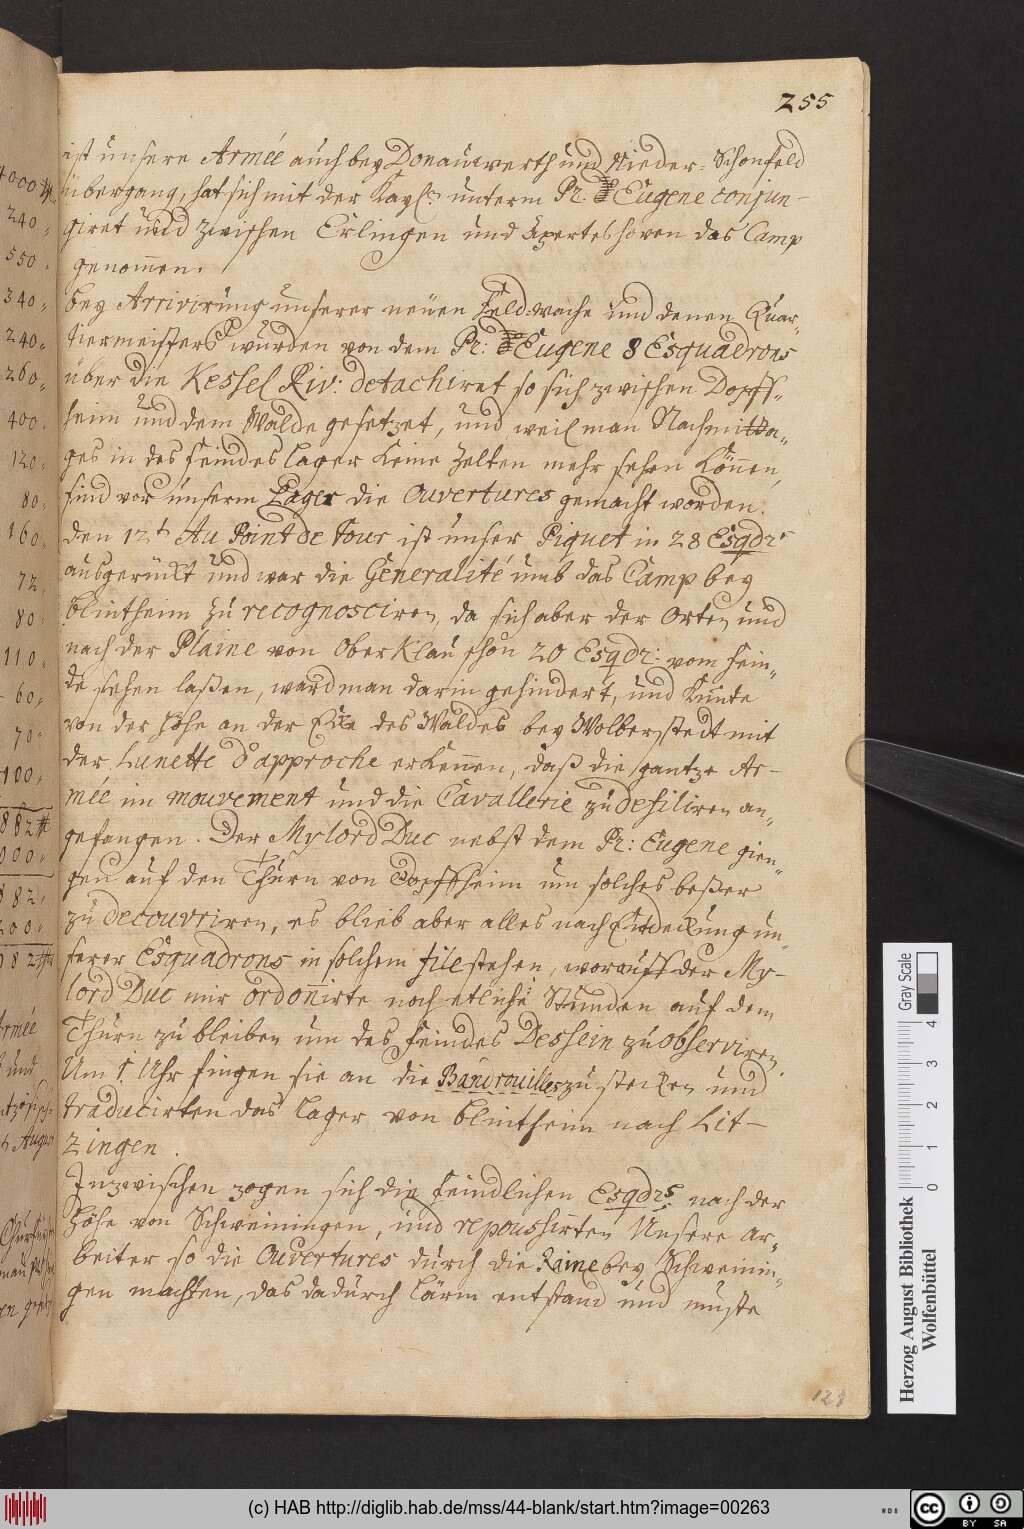 255
ist unsere Armée auch bey Donauwerth und Nieder-Schonfeld
übergang, hat sich mit der Kayſ: unterm Pr. Eugene conjun-
giret und zwischen Erlingen und Apertshoven das Camp
genommen.
bey Arrivirung unserer neuen Feldwache und denen Quar-
tiermeisters wurden von dem Pr: Eugene 8 Esquadrons
über die Kessel Riv: detachiret so sich zwischen Dopff-
heim und dem Walde gesetzet, und weil man Nachmitta-
ges in des Feindes Lager keine Zelten mehr sehen können,
sind vor unserm Lager die Ouvertures gemacht worden.
den 12t Au Point de Jour ist unser Piquet in 28 Esqdr.
ausgerückt und war die Generalité umb das Camp bey
Blintheim zu recognosciren, da sich aber der Orten und
nach der Plaine von Ober Klau schon 20 Esqdr: vom Fein-
de sehen laßen, ward man darin gehindert, und kunte
von der Höhe an der Ecke des Waldes bey Wolberstedt mit
der Lunette d'approche erkennen, daß die gantze Ar-
mée im mouvement und die Cavallerie zu defiliren an-
gefangen. Der Mylord Duc nebst dem Pr: Eugene gien-
gen auf den Thurn von Dopffheim um solches beßer
zu decouvriren, es blieb aber alles nach Entdeckung un-
serer Esquadrons in solchem file stehen, worauff der My-
lord Duc mir ordoñirte noch etliche Stunden auf dem
Thurn zu bleiben um des Feindes Dessein zu observiren.
Um 1. Uhr fingen sie an die Bandrouilles zu stecken und
traducirten das Lager von Blintheim nach Lit-
zingen.
Inzwischen zogen sich die Feindlichen Esqdrs nach der
Höhe von Schweiningen, und repoussirten Unsere Ar-
beiter so die Ouvertures durch die Raine bey Schweinin-
gen machten, das dadurch Lärm entstand und muste
128
4000
240
550
340
240
260
400
120
80
160
72
80
110
60
70
100
882
000
882
Armée
und
August
Herzog August Bibliothek
Wolfenbüttel
Gray Scale
0 1 2 3 4
(c) HAB http://diglib.hab.de/mss/44-blank/start.htm?image=00263
WDB
cc BY SA